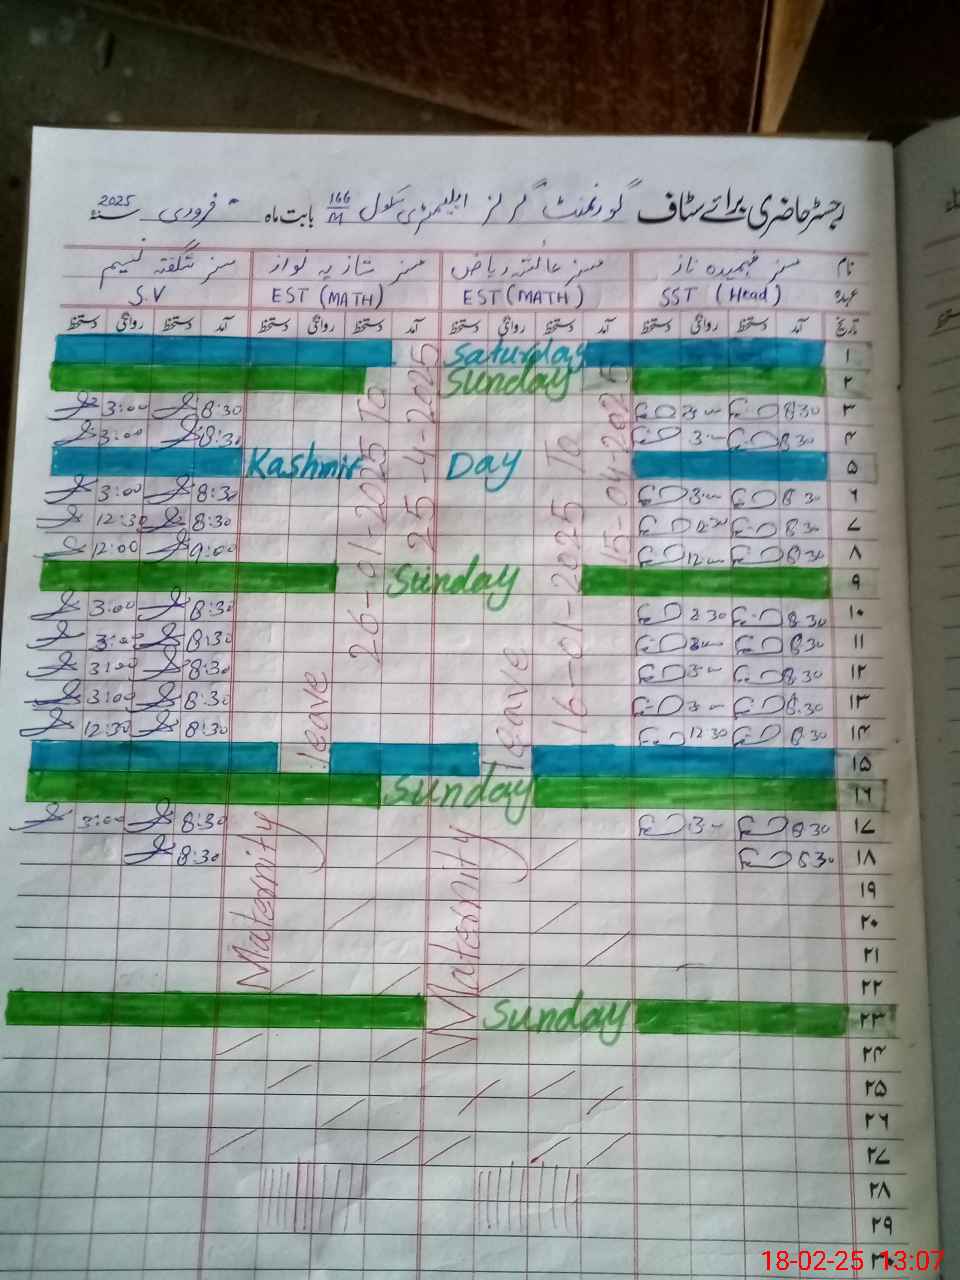 رجسٹر حاضری برائے سٹاف گورنمنٹ گرلز ایلیمنٹری سکول 166/M بابت ماہ فروری سنہ 2025
نام مسز فہمیدہ ناز مسز عائشہ ریاض مسز شازیہ نواز مسز شگفتہ نسیم
عہدہ SST (Head) EST (MATH) EST (MATH) S.V
تاریخ آمد دستخط روانگی دستخط آمد دستخط روانگی دستخط آمد دستخط روانگی دستخط آمد دستخط روانگی دستخط
۱ Saturday
۲ Sunday
۳ 8:30 3:00 8:30 3:00
۴ 8:30 3:00 8:30 3:00
۵ Kashmir Day
۶ 8:30 3:00 8:30 3:00
۷ 8:30 12:30 8:30 12:30
۸ 8:30 12:00 9:00 12:00
۹ Sunday
۱۰ 8:30 8:30 3:00
۱۱ 8:30 3:00 8:30 3:00
۱۲ 8:30 3:00 8:30 3:00
۱۳ 8:30 3:00 8:30 3:00
۱۴ 8:30 12:30 8:30 12:30
۱۵
۱۶ Sunday
۱۷ 8:30 3:00 8:30 3:00
۱۸ 8:30 8:30
۱۹
۲۰
۲۱
۲۲
۲۳ Sunday
۲۴
۲۵
۲۶
۲۷
۲۸
۲۹
۳۰
Maternity leave 16-01-2025 To 15-04-2025
Maternity leave 26-01-2025 To 25-4-2025
18-02-25 13:07